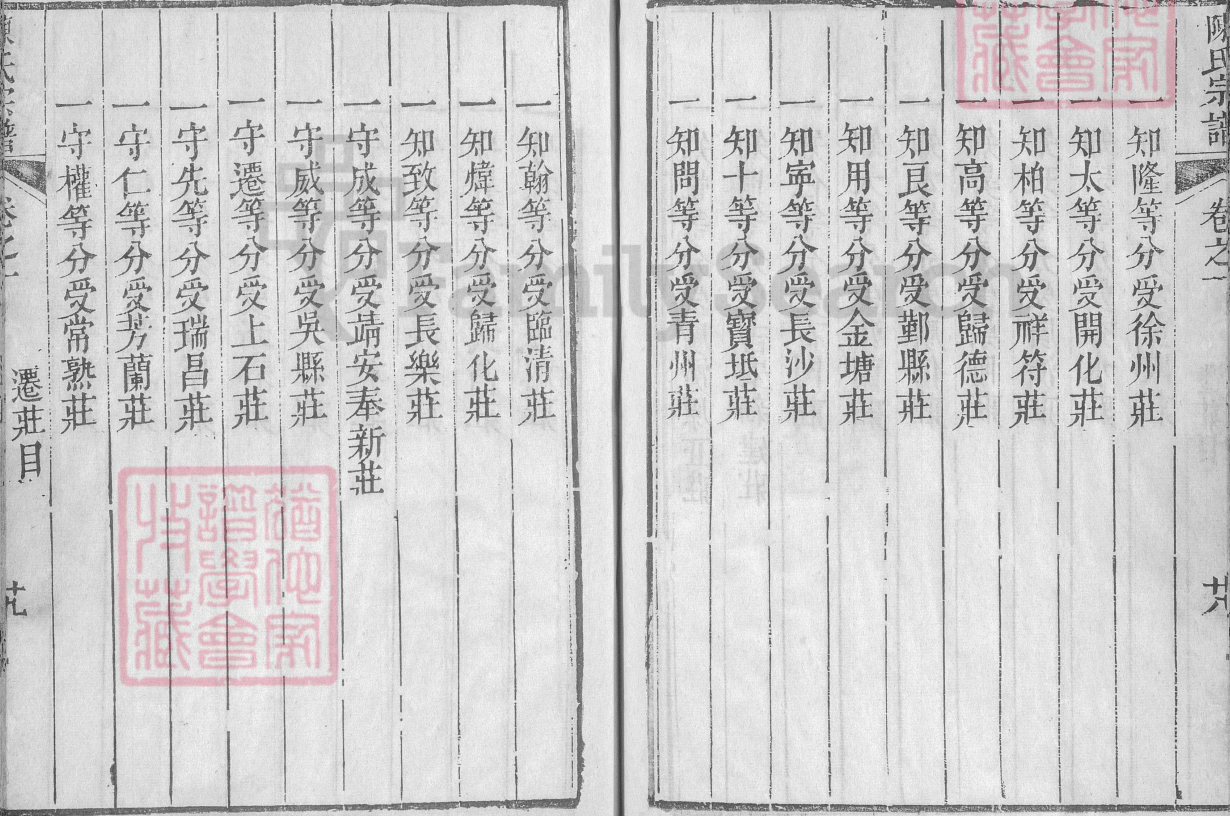 陳氏宗譜
卷之一
廿八
一知隆等分受徐州莊
一知太等分受開化莊
一知柏等分受祥符莊
一知高等分受歸德莊
一知良等分受鄞縣莊
一知用等分受金塘莊
一知寜等分受長沙莊
一知十等分受寳坻莊
一知問等分受青州莊
一知翰等分受臨清莊
一知煒等分受歸化莊
一知致等分受長樂莊
一守成等分受靖安奉新莊
一守威等分受吳縣莊
一守遷等分受上石莊
一守先等分受瑞昌莊
一守仁等分受芳蘭莊
一守權等分受常熟莊
陳氏宗譜
卷之一
遷莊目
廿九
FamilySearch